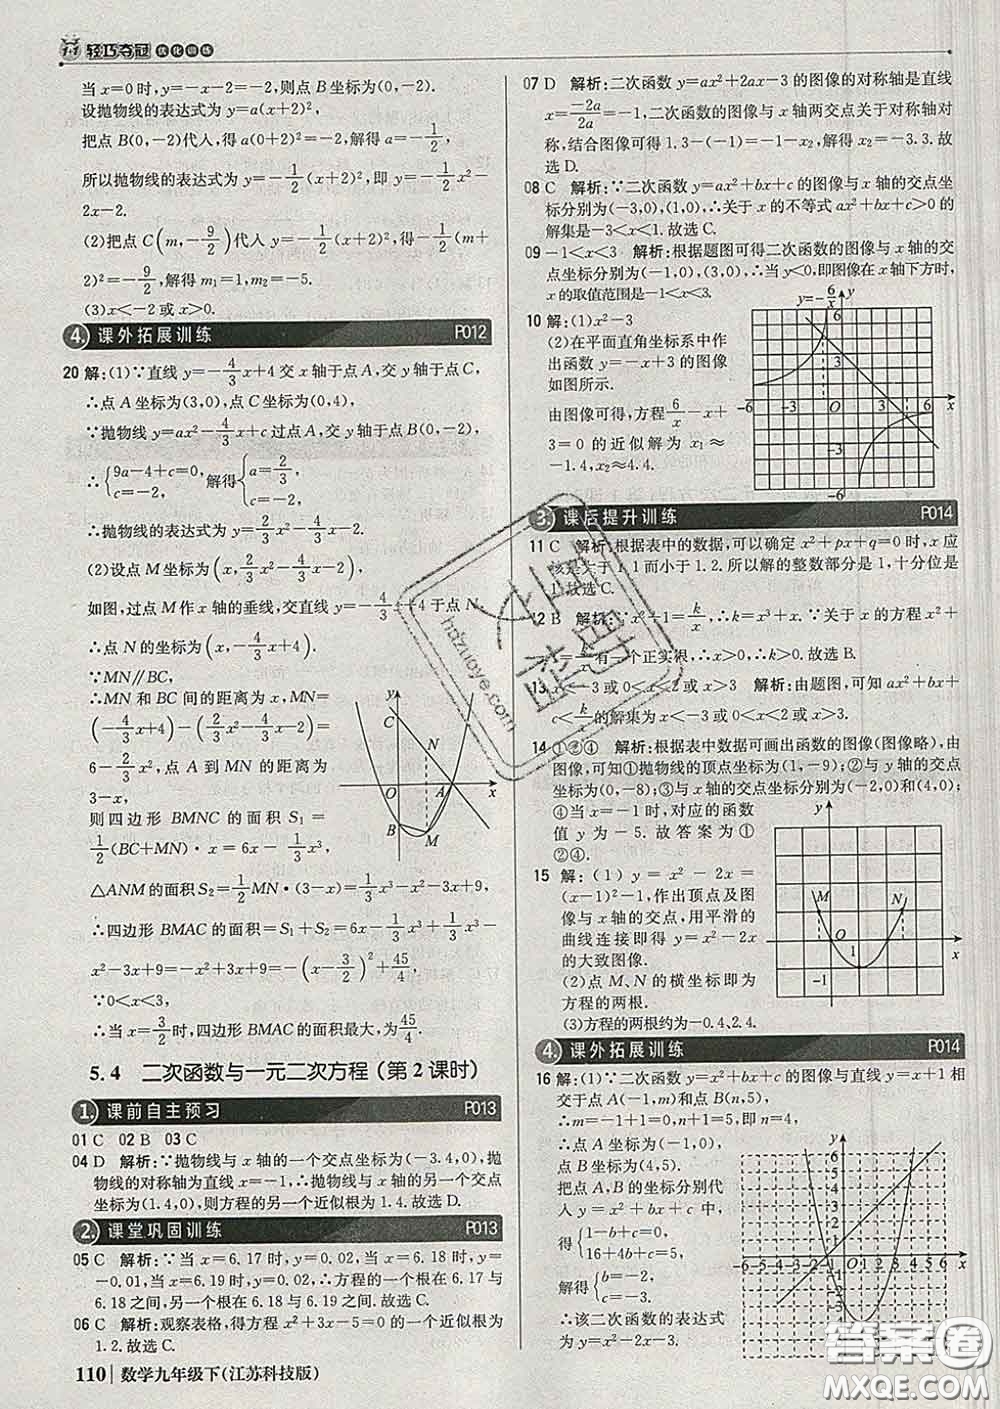 轻巧夺冠 优化训练
当x=0时,y=-x-2=-2,则点B(0,-2).
设抛物线的表达式为y=a(x+2)²,
把点B(0,-2)代人,得a(0+2)²=-2,解得a=-1/2,
所以抛物线的表达式为y=-1/2(x+2)²,即y=-1/2x²-
2x-2.
(2)把点C(m,-9/2)代人y=-1/2(x+2)²,得-1/2(m+
2)²=-9/2,解得m₁=1,m₂=-5.
(3)x<-2或x>0.
4. 课外拓展训练 P012
20 解:(1)∵直线y=-4/3x+4交x轴于点A,交y轴于点C,
∴点A坐标为(3,0),点C坐标为(0,4),
∵抛物线y=ax²-4/3x+c过点A,交y轴于点B(0,-2),
∴{9a-4+c=0, c=-2, 解得{a=2/3, c=-2,
∴抛物线的表达式为y=2/3x²-4/3x-2.
(2)设点M坐标为(x,2/3x²-4/3x-2),
如图,过点M作x轴的垂线,交直线y=-4/3x+4于点N,
∴点N的坐标为(x,-4/3x+4).
∵MN∥BC,
∴MN和BC间的距离为x,MN=
(-4/3x+4)-(2/3x²-4/3x-2)=
6-2/3x²,点A到MN的距离为
3-x,
则四边形BMNC的面积S₁=
1/2(BC+MN)·x=6x-1/3x³,
△ANM的面积S₂=1/2MN·(3-x)=1/3x³-x²-3x+9,
∴四边形BMAC的面积=S₁+S₂=6x-1/3x³+1/3x³-
x²-3x+9=-x²+3x+9=-(x-3/2)²+45/4,
∵0<x<3,
∴当x=3/2时,四边形BMAC的面积最大,为45/4.
y C N O A x B M
5.4 二次函数与一元二次方程(第2课时)
1. 课前自主预习 P013
01 C 02 B 03 C
04 D 解析:∵抛物线与x轴的一个交点坐标为(-3.4,0),抛
物线的对称轴为直线x=-1,∴抛物线与x轴的另一个交点
坐标为(1.4,0),则方程的另一个近似根为1.4.故选D.
2. 课堂巩固训练 P013
05 C 解析:∵当x=6.17时,y=0.02,当x=6.18时,y=
-0.01,当x=6.19时,y=0.02,∴方程的一个根在6.17与
6.18之间,另一个根在6.18与6.19之间.故选C.
06 C 解析:观察表格,得方程x²+3x-5=0的一个近似根为
1.2.故选C.
110 数学九年级下(江苏科技版)
07 D 解析:二次函数y=ax²+2ax-3的图像的对称轴是直线
x=-2a/2a=-1,二次函数的图像与x轴两交点关于对称轴对
称,结合图像可得1.3-(-1)=-1-x₂,解得x₂=-3.3.故
选D.
08 C 解析:∵二次函数y=ax²+bx+c的图像与x轴的交点
坐标分别为(-3,0),(1,0),∴关于x的不等式ax²+bx+c>0的
解集是-3<x<1.故选C.
09 -1<x<3 解析:根据题图可得二次函数的图像与x轴的交
点坐标分别为(-1,0),(3,0),∴当y<0,即图像在x轴下方时,
x的取值范围是-1<x<3.
10 解:(1)x²-3
(2)在平面直角坐标系中作
出函数y=-x+3的图像
如图所示.
由图像可得,方程6/x-x+
3=0的近似解为x₁≈
-1.4,x₂≈4.4.
y=-6/x y 6 3 -6 -3 O 3 6 x -3 -6
3. 课后提升训练 P014
11 C 解析:根据表中的数据,可以确定x²+px+q=0时,x应
该是大于1.1而小于1.2.所以解的整数部分是1,十分位是
1.故选C.
12 B 解析:∵x²+1=k/x,∴k=x³+x.∵关于x的方程x²+
1=k/x有一个正实根,∴x>0,∴k>0.故选B.
13 x<-3或0<x<2或x>3 解析:由题图,可知ax²+bx+
c<k/x的解集为x<-3或0<x<2或x>3.
14 ①②④ 解析:根据表中数据可画出函数的图像(图像略),由
图像,可知①抛物线的顶点坐标为(1,-9);②与y轴的交点坐标为
(0,-8);③与x轴的交点坐标分别为(-2,0)和(4,0);
④当x=-1时,对应的函数
值y为-5.故答案为①
②④.
15 解:(1)y=x²-2x=
(x-1)²-1,作出顶点及图
像与x轴的交点,用平滑的
曲线连接即得y=x²-2x
的大致图像.
(2)点M、N的横坐标即为
方程的两根.
(3)方程的两根约为-0.4,2.4.
y M N O 1 x -1
4. 课外拓展训练 P014
16 解:(1)∵二次函数y=x²+bx+c的图像与直线y=x+1相
交于点A(-1,m)和点B(n,5),
∴m=-1+1=0,n+1=5,即n=4,
∴点A坐标为(-1,0),
点B坐标为(4,5).
把点A、B的坐标分别代
人y=x²+bx+c,
得{1-b+c=0, 16+4b+c=5,
解得{b=-2, c=-3,
∴该二次函数的表达式
为y=x²-2x-3.
y 6 5 4 3 2 1 -6-5-4-3-2-1 O 1 2 3 4 5 6 x
hdzuoye.com
答案卷
MXQE.COM